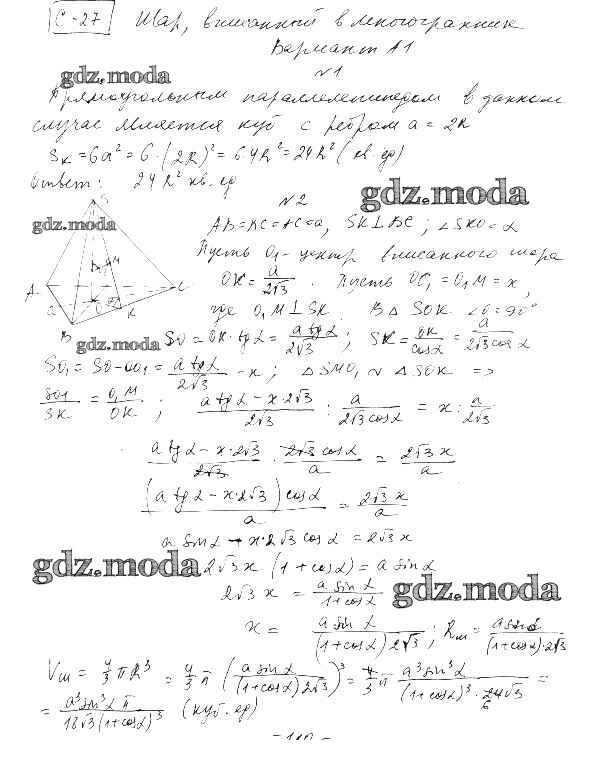 С-27 Шар, вписанный в многогранник
Вариант А1
№1
gdz.moda
Прямоугольным параллелепипедом в данном
случае является куб с ребром a = 2R
Sк = 6a² = 6·(2R)² = 6·4R² = 24R² (кв. ед)
Ответ: 24R² кв. ед
№2
gdz.moda
gdz.moda
AB=BC=AC=a, SK⊥BC; ∠SKO=α
Пусть O₁ - центр вписанного шара
OK = a/2√3. Пусть OO₁ = O₁M = x,
где O₁M ⊥ SK. В △ SOK ∠O=90°
gdz.moda
SO = OK·tgα = a tgα/2√3; SK = OK/cosα = a/2√3 cosα
SO₁ = SO-OO₁ = a tgα/2√3 - x; △SMO₁ ~ △SOK =>
SO₁/SK = O₁M/OK; a tgα - x·2√3/2√3 : a/2√3 cosα = x : a/2√3
a tgα - x·2√3/2√3 · 2√3 cosα/a = 2√3 x/a
(a tgα - x·2√3) cosα/a = 2√3 x/a
a sinα - x·2√3 cosα = 2√3 x
gdz.moda
2√3 x (1+cosα) = a sinα
2√3 x = a sinα/1+cosα
gdz.moda
x = a sinα/(1+cosα) 2√3; Rш = a sinα/(1+cosα)·2√3
Vш = 4/3 πR³ = 4/3 π (a sinα/(1+cosα) 2√3)³ = 4/3 π a³ sin³α/(1+cosα)³·24√3 =
= a³ sin³α π/18√3 (1+cosα)³ (куб. ед)